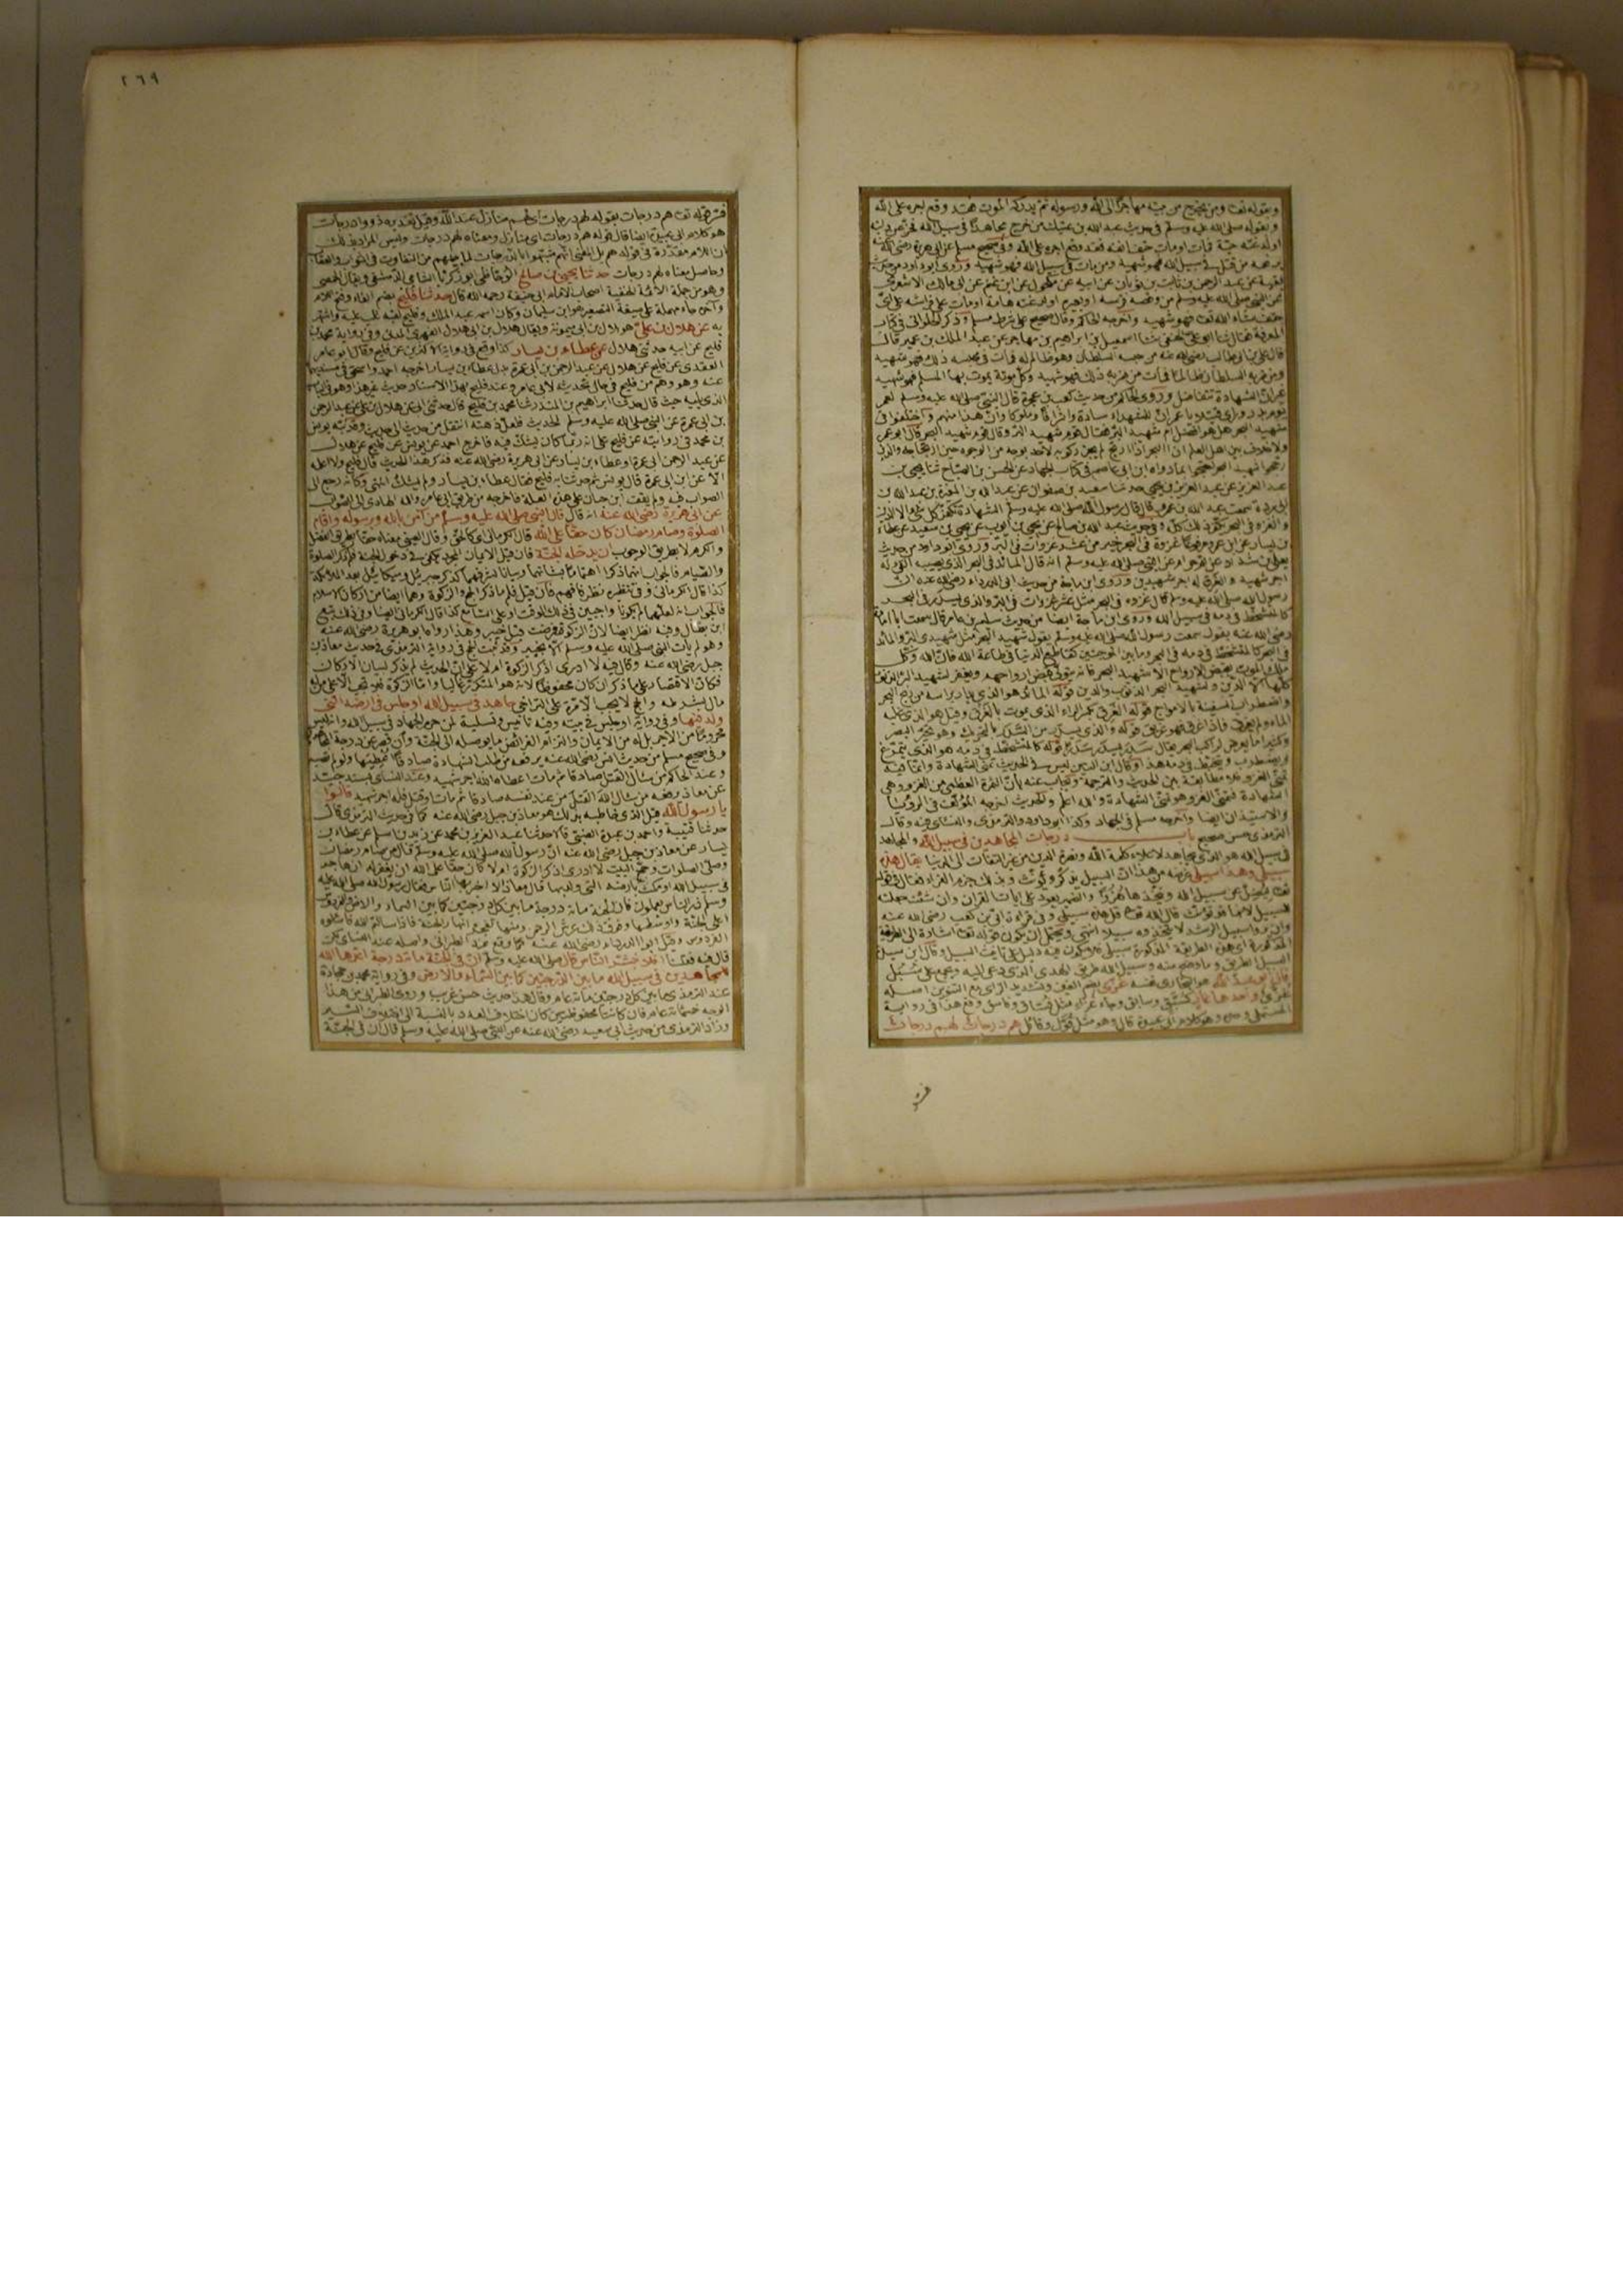 وبقوله تعا ومن يخرج من بيته مهاجرًا الى الله ورسوله ثم يدركه الموت فقد وقع اجره على الله
وبقوله صلى الله عليه وسلم في حديث عبد الله بن عتيك من خرج مجاهدًا في سبيل الله فخر عن دابته
او لدغته حية فمات او مات حتف انفه فقد وقع اجره على الله وفي صحيح مسلم عن ابي هريرة رضي الله
من قتل في سبيل الله فهو شهيد ومن مات في سبيل الله فهو شهيد وروى ابو داود من حديث
حتف شاء الله تعا فهو شهيد واخرجه الحاكم وقال صحيح على شرط مسلم وذكر الحلواني في كتاب
المعرفة فقال ثنا ابو علي الحنفي ثنا اسمعيل بن ابراهيم بن مهاجر عن عبد الملك بن عمير قال
قال علي بن ابي طالب رضي الله عنه من حبسه السلطان وهو ظالم له فمات في محبسه ذلك فهو شهيد
ومن ضربه السلطان ظالما فمات من ضربه ذلك فهو شهيد وكل موتة يموت بها المسلم فهو شهيد
غير ان الشهادة تتفاضل وروى الحاكم من حديث كعب بن عجرة قال النبي صلى الله عليه وسلم لعمر
شهيد البحر هل هو افضل ام شهيد البر فقال قوم شهيد البر وقال قوم شهيد البحر قال ابو عمر
ولا خلاف بين اهل العلم ان البحر اذا ارتج لم يجز ركوبه لاحد بوجه من الوجوه حين ارتجاجه والذين
رسول الله صلى الله عليه وسلم قال غزوة في البحر مثل عشر غزوات في البر والذي يسدر في البحر
كالمتشحط في دمه في سبيل الله وروى ابن ماجة ايضا من حديث سليم بن عامر قال سمعت ابا امامة
رضي الله عنه يقول سمعت رسول الله صلى الله عليه وسلم يقول شهيد البحر مثل شهيدي البر والمائد
في البحر كالمتشحط في دمه في البر وما بين الموجتين كقاطع الدنيا في طاعة الله فان الله وكل
ملك الموت بقبض الارواح الا شهيد البحر فانه يتولى قبض ارواحهم ويغفر لشهيد البر الذنوب
كلها الا الدين ولشهيد البحر الذنوب والدين قوله المائد هو الذي يدار برأسه من ريح البحر
واضطراب السفينة بالامواج قوله الغرق بكسر الراء الذي يموت بالغرق وقيل هو الذي غلبه
الماء ولم يغرق فاذا غرق فهو غريق قوله والذي يسدر من السدر بالتحريك وهو تحير البصر
وكثيرا ما يعرض لراكب البحر يقال سدر يسدر سدرا قوله كالمتشحط في دمه هو الذي يتمرغ
ويضطرب ويتخبط في دمه هذا وقال ابن التين ليس في الحديث تمني الشهادة وانما فيه
تمني الغزو فلا مطابقة بين الحديث والترجمة ويجاب عنه بان الثمرة العظمى من الغزو هي
الشهادة فتمني الغزو هو تمني الشهادة والله اعلم والحديث اخرجه المؤلف في الرؤيا
والاستيذان ايضا واخرجه مسلم في الجهاد وكذا ابو داود والترمذي والنسائي فيه وقال
الترمذي حسن صحيح باب درجات المجاهدين في سبيل الله والمجاهد
في سبيل الله هو الذي يجاهد لاعلاء كلمة الله ونصرة الدين من غير التفات الى الدنيا يقال هذه
سبيلي وهذا سبيلي غرضه من هذا ان السبيل يذكر ويؤنث وبذلك جزم الفراء فقال في قوله
تعا ليضل عن سبيل الله ويتخذها هزوا والضمير يعود على ايات القران وان شئت جعلته
للسبيل لانها قد تؤنث قال الله تعا قل هذه سبيلي وفي قراءة ابي بن كعب رضي الله عنه
وان يروا سبيل الرشد لا يتخذوه سبيلا انتهى ويحتمل ان يكون قوله تعا اشارة الى الطريقة
المذكورة اي هذه الطريقة المذكورة سبيلي فلا يكون فيه دليل على تانيث السبيل وقال ابن سيده
السبيل الطريق وما وضح منه وسبيل الله طريق الهدى الذي دعى اليه ويجمع على سبل
قال ابو عبد الله هو البخاري نفسه غزى بضم الغين وتشديد الزاي مع التنوين اصله
المستملي وحده وهو كلام ابي عبيدة قال وهو مثل قوّل وقائل هم درجات لهم درجات
٢٦٩
فسر قوله تعا هم درجات بقوله لهم درجات اي لهم منازل عند الله وقيل تقديره ذووا درجات
هو كلام ابي عبيدة ايضا قال قوله هم درجات اي منازل ومعناه لهم درجات وليس المراد بذلك
ان اللام مقدرة في قوله هم بل المعنى انهم شبهوا بالدرجات لما بينهم من التفاوت في الثواب والعقاب
وحاصل معناه لهم درجات حدثنا يحيى بن صالح الوحاظي ابو زكريا الشامي الدمشقي ويقال الحمصي
وهو من جملة الائمة الحنفية اصحاب الامام ابي حنيفة رحمه الله قال حدثنا فليح بضم الفاء وفتح اللام
وآخره حاء مهملة على صيغة التصغير هو ابن سليمان وكان اسمه عبد الملك وفليح لقبه غلب عليه واشتهر
به عن هلال بن علي هو هلال بن ابي ميمونة ويقال هلال بن ابي هلال الفهري المدني وفي رواية محمد بن
فليح عن ابيه حدثني هلال عن عطاء بن يسار كذا وقع في رواية الاكثرين عن فليح وقال ابو عامر
العقدي عن فليح عن هلال عن عبد الرحمن بن ابي عمرة بدل عطاء بن يسار اخرجه احمد واسحق في مسنديهما
عنه وهو وهم من فليح في حال تحديثه لابي عامر وعند فليح بهذا الاسناد حديث غير هذا وهو في الباب
الذي يليه حيث قال حدثنا ابراهيم بن المنذر ثنا محمد بن فليح قال حدثني ابي عن هلال بن علي عن عبد الرحمن
بن ابي عمرة عن النبي صلى الله عليه وسلم الحديث فلعل ذهنه انتقل من حديث الى حديث وقد نبه يونس
بن محمد في روايته عن فليح على انه ربما كان يشك فيه فاخرج احمد عن يونس عن فليح عن هلال
عن عبد الرحمن ابي عمرة او عطاء بن يسار عن ابي هريرة رضي الله عنه فذكر هذا الحديث قال فليح ولا اعلمه
الا عن ابن ابي عمرة قال يونس ثم حدثنا به فليح فقال عطاء بن يسار ولم يشك انتهى وكانه رجع الى
الصواب فيه ولم يقف ابن حبان على هذه العلة فاخرجه من طريق ابي عامر والله الهادي الى الصواب
عن ابي هريرة رضي الله عنه انه قال قال النبي صلى الله عليه وسلم من آمن بالله ورسوله واقام
الصلوة وصام رمضان كان حقا على الله قال الكرماني اي كالحق وقال العيني معناه حقا بطريق الفضل
والكرم لا بطريق الوجوب ان يدخله الجنة فان قيل الايمان المجرد يكفي في دخول الجنة فلم ذكر الصلوة
والصيام فالجواب انما ذكرا اهتماما بشانهما وبيانا لشرفهما كذكر جبريل وميكائيل بعد الملائكة
كذا قال الكرماني وفي تنظيره نظر فافهم فان قيل فلم ما ذكر الحج والزكوة وهما ايضا من اركان الاسلام
فالجواب انه لعلهما لم يكونا واجبين في ذلك الوقت او على السامع كذا قال الكرماني ايضا وفي ذلك تبع
ابن بطال وفيه نظر ايضا لان الزكوة فرضت قبل خيبر وهذا رواه ابو هريرة رضي الله عنه
وهو لم يأت النبي صلى الله عليه وسلم الا بخيبر وقد ثبت الحج في رواية الترمذي في حديث معاذ بن
جبل رضي الله عنه وقال فيه لا ادري اذكر الزكوة ام لا على ان الحديث لم يذكر لبيان الاركان
فكان الاقتصار على ما ذكر ان كان محفوظا لانه هو المتكرر غالبا واما الزكوة فلا تجب الا على من له
مال بشرطه والحج لا يجب الا مرة على التراخي جاهد في سبيل الله او جلس في ارضه التي
ولد فيها وفي رواية او جلس في بيته وفيه تأنيس وتسلية لمن حرم الجهاد في سبيل الله وانه ليس
محروما من الاجر بل له من الايمان والتزام الفرائض ما يوصله الى الجنة وان قصر عن درجة المجاهدين
وفي صحيح مسلم من حديث انس رضي الله عنه يرفعه من طلب الشهادة صادقا اعطيها ولو لم تصبه
وعند الحاكم من سال القتل صادقا ثم مات اعطاه الله اجر شهيد وعند النسائي بسند جيد
عن معاذ رفعه من سال الله القتل من عند نفسه صادقا ثم مات او قتل فله اجر شهيد قالوا
يا رسول الله قيل الذي خاطبه بذلك هو معاذ بن جبل رضي الله عنه كما في حديث الترمذي قال
حدثنا قتيبة واحمد بن عبدة الضبي قالا حدثنا عبد العزيز بن محمد عن زيد بن اسلم عن عطاء بن
يسار عن معاذ بن جبل رضي الله عنه ان رسول الله صلى الله عليه وسلم قال من صام رمضان
وصلى الصلوات وحج البيت لا ادري اذكر الزكوة ام لا كان حقا على الله ان يغفر له ان هاجر
في سبيل الله او مكث بارضه التي ولد بها قال معاذ الا اخبر بها الناس فقال رسول الله صلى الله عليه
وسلم ذر الناس يعملون فان في الجنة مائة درجة ما بين كل درجتين كما بين السماء والارض والفردوس
اعلى الجنة واوسطها وفوق ذلك عرش الرحمن ومنها تفجر انهار الجنة فاذا سالتم الله فاسئلوه
الفردوس وقيل ابو الدرداء رضي الله عنه كما وقع عند الطبراني واصله عند النسائي لكن
قال فيه فقلنا افلا نبشر الناس قال صلى الله عليه وسلم ان في الجنة مائة درجة اعدها الله
للمجاهدين في سبيل الله ما بين الدرجتين كما بين السماء والارض وفي رواية محمد بن جحادة
عند الترمذي ما بين كل درجتين مائة عام وقال هذا حديث حسن غريب وروى الطبراني من هذا
الوجه خمسمائة عام فان كانتا محفوظتين كان اختلاف العدد بالنسبة الى اختلاف السير
وزاد الترمذي من حديث ابي سعيد رضي الله عنه عن النبي صلى الله عليه وسلم قال ان في الجنة